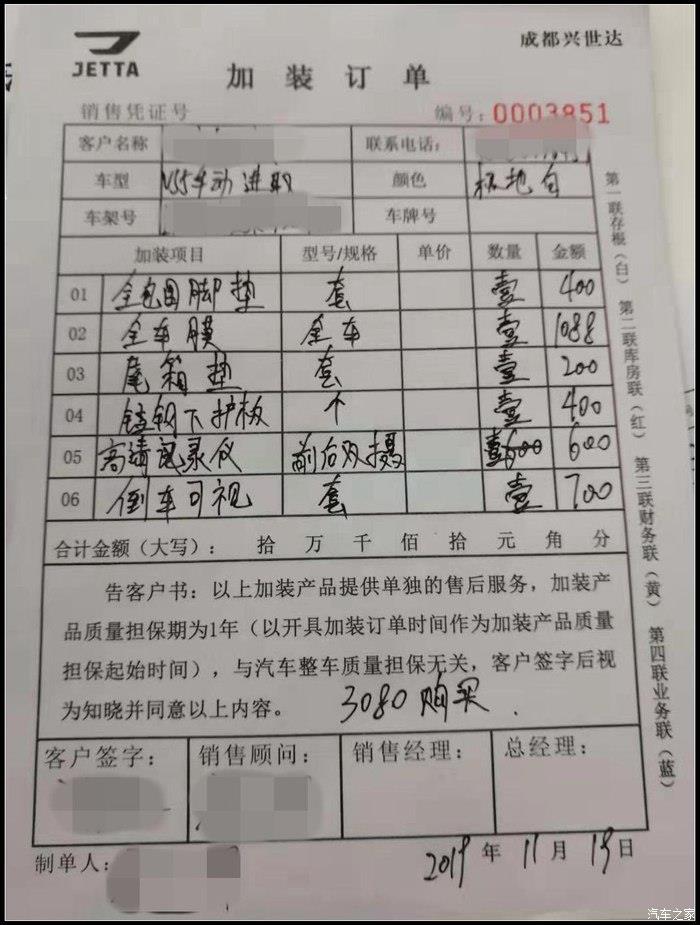 JETTA
成都兴世达
加装订单
销售凭证号 编号: 0003851
客户名称 联系电话:
车型 VS5手动进取 颜色 极地白
车架号 车牌号
加装项目 型号/规格 单价 数量 金额
01 全包围脚垫 套 壹 400
02 全车膜 全车 壹 1088
03 尾箱垫 套 壹 200
04 锰钢下护板 个 壹 400
05 高清记录仪 前后双摄 壹 600
06 倒车可视 套 壹 700
合计金额(大写): 拾 万 千 佰 拾 元 角 分
告客户书:以上加装产品提供单独的售后服务,加装产
品质量担保期为1年(以开具加装订单时间作为加装产品质量
担保起始时间),与汽车整车质量担保无关,客户签字后视
为知晓并同意以上内容。 3080购买.
客户签字: 销售顾问: 销售经理: 总经理:
制单人: 2019年11月19日
第一联存根(白) 第二联库房联(红) 第三联财务联(黄) 第四联业务联(蓝)
汽车之家